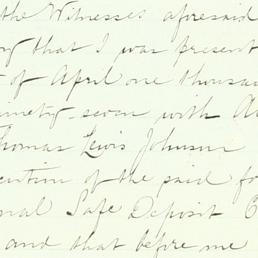 the Witnesses aforesaid
that I was present
of April one thousand
ninety seven with
Thomas Lewis Johnson
of the said
Safe Deposit
and that before me